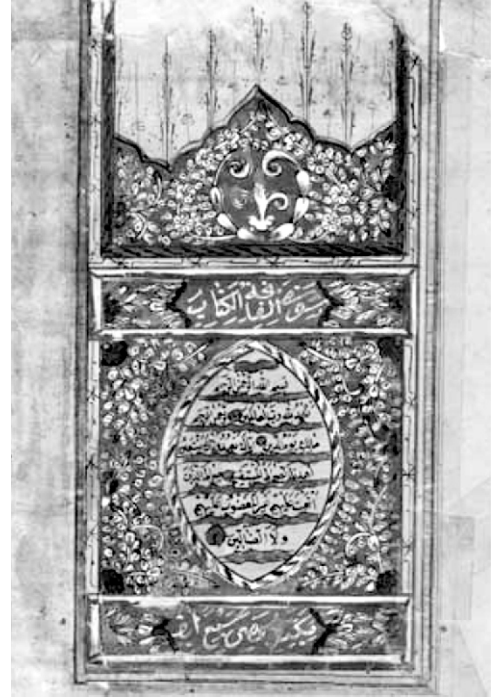 سورة الفاتحة الكتاب
بسم الله الرحمن الرحيم
الحمد لله رب العالمين الرحمن الرحيم
مالك يوم الدين إياك نعبد وإياك نستعين
اهدنا الصراط المستقيم صراط الذين
أنعمت عليهم غير المغضوب عليهم
ولا الضالين
سبع